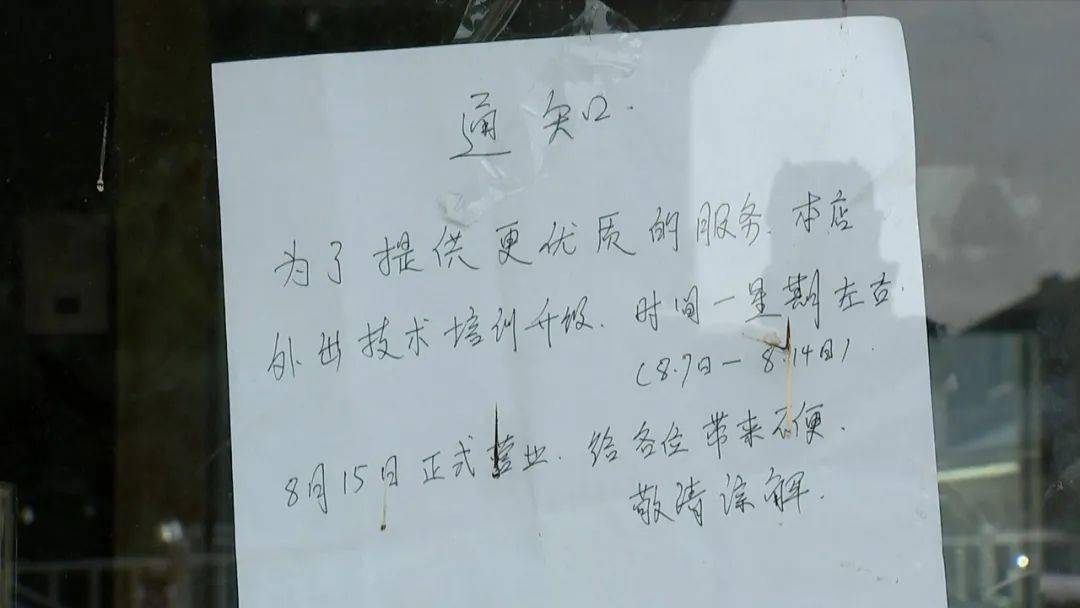 通知.
为了提供更优质的服务.本店
外出技术培训升级.时间一星期左右.
(8.7日—8.14日).
8月15日正式营业.给各位带来不便.
敬请谅解.